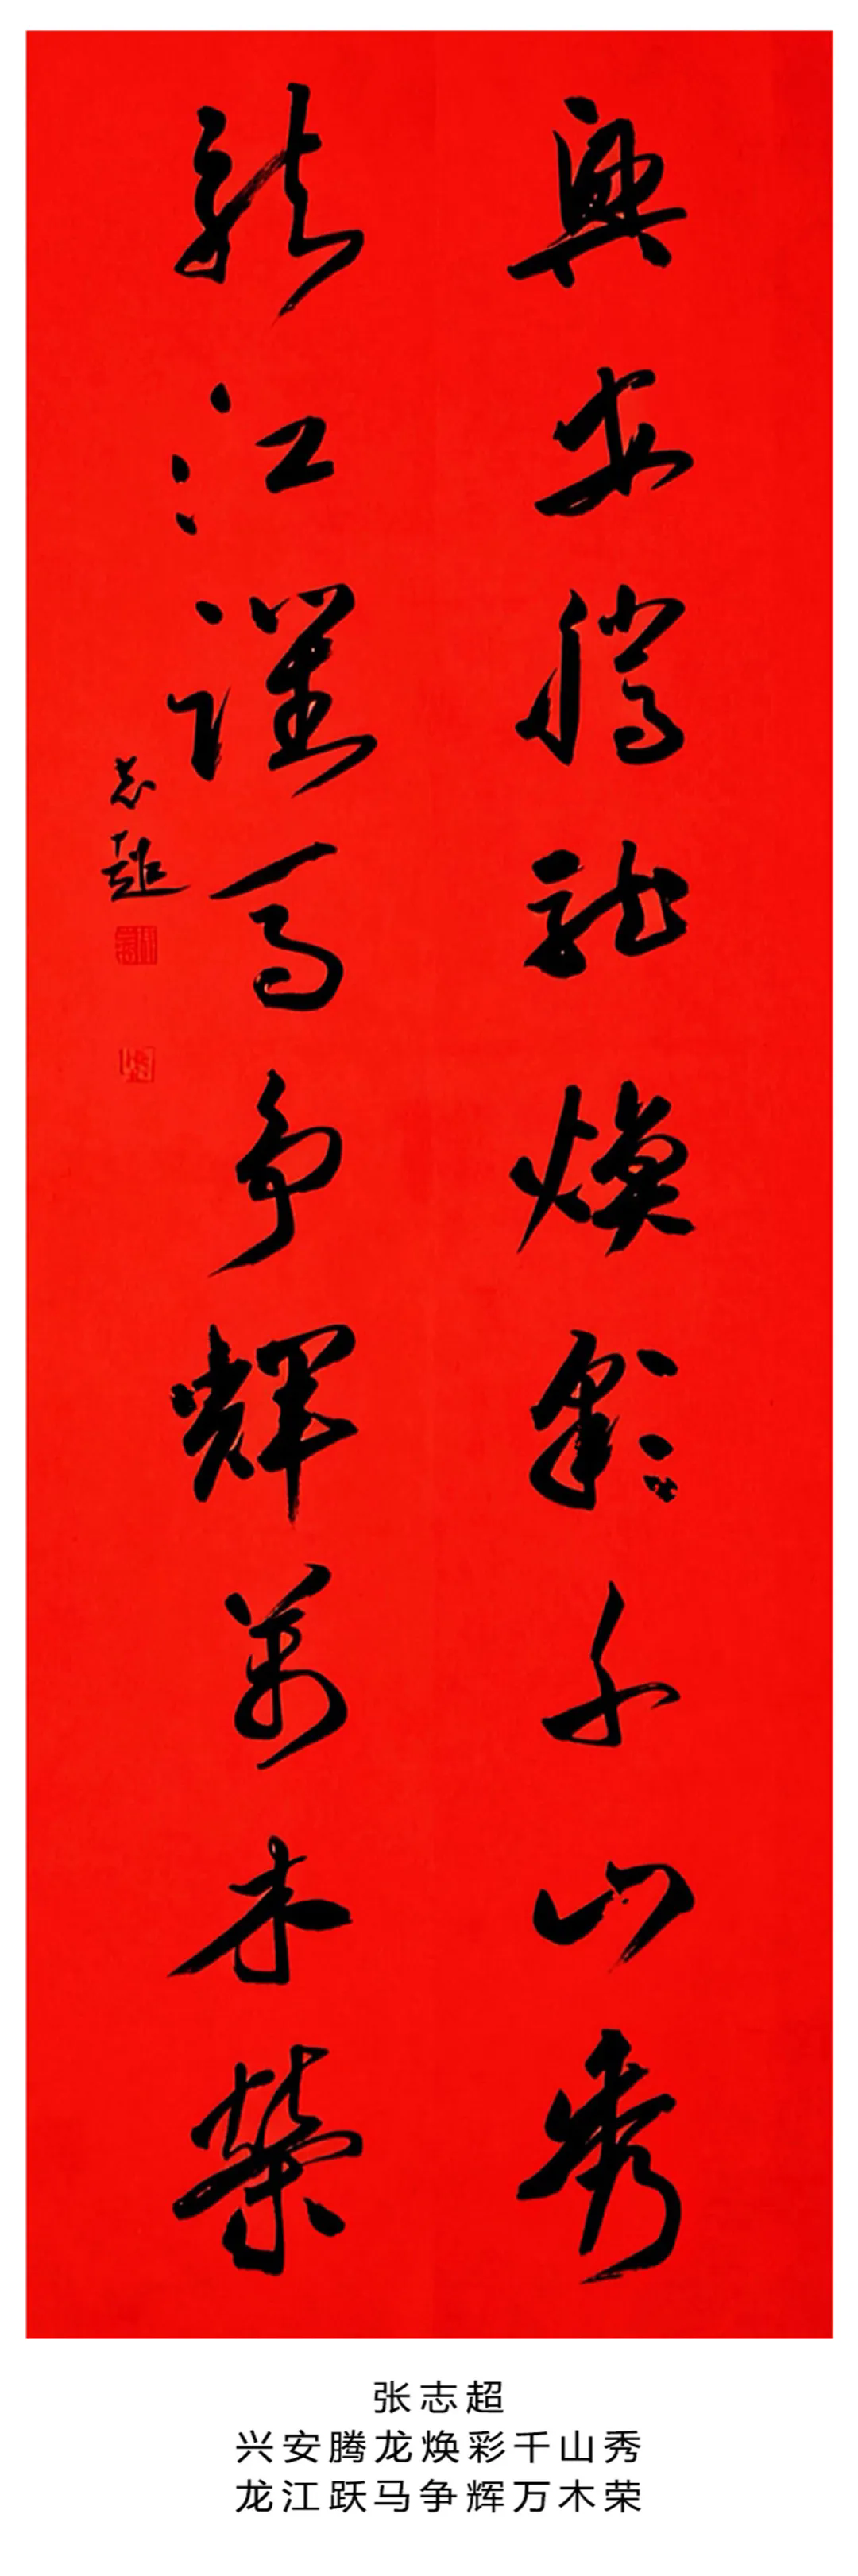 興安騰龍煥彩千山秀
龍江躍馬争輝萬木榮
志超
张志超
兴安腾龙焕彩千山秀
龙江跃马争辉万木荣